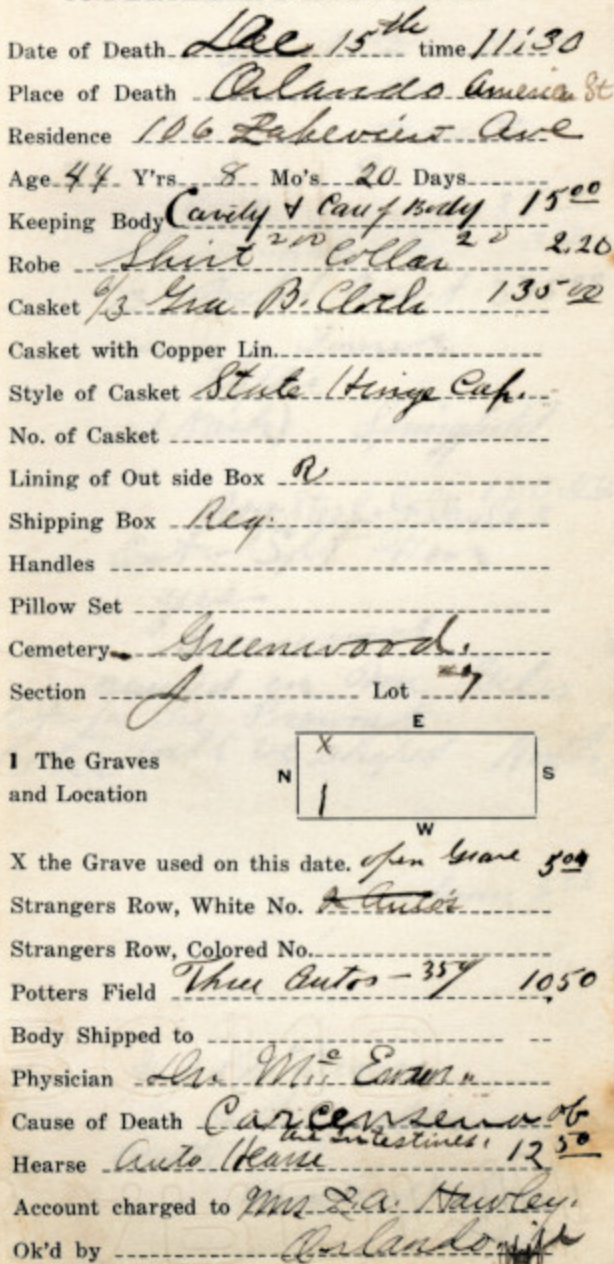 Date of Death Dec 15th time 11:30
Place of Death Orlando America St
Residence 106 Lakeview Ave
Age 44 Y'rs 8 Mo's 20 Days
Keeping Body Cavity & Care of Body 15 00
Robe Shirt 2 00 Collar 20 2.20
Casket 6/3 Gra B. Cloth 135 00
Casket with Copper Lin.
Style of Casket State Hinge Cap.
No. of Casket
Lining of Out side Box R
Shipping Box Reg.
Handles
Pillow Set
Cemetery Greenwood.
Section J Lot #7
E
1 The Graves and Location
N X S
1
W
X the Grave used on this date. open Grave 5 00
Strangers Row, White No. 2 Autos
Strangers Row, Colored No.
Potters Field Three Autos - 350 10 50
Body Shipped to
Physician Dr. Mc Ewan
Cause of Death Carcenseno of
the Intestines.
Hearse Auto Hearse 12 50
Account charged to Mrs Z.A. Hawley.
Ok'd by Orlando